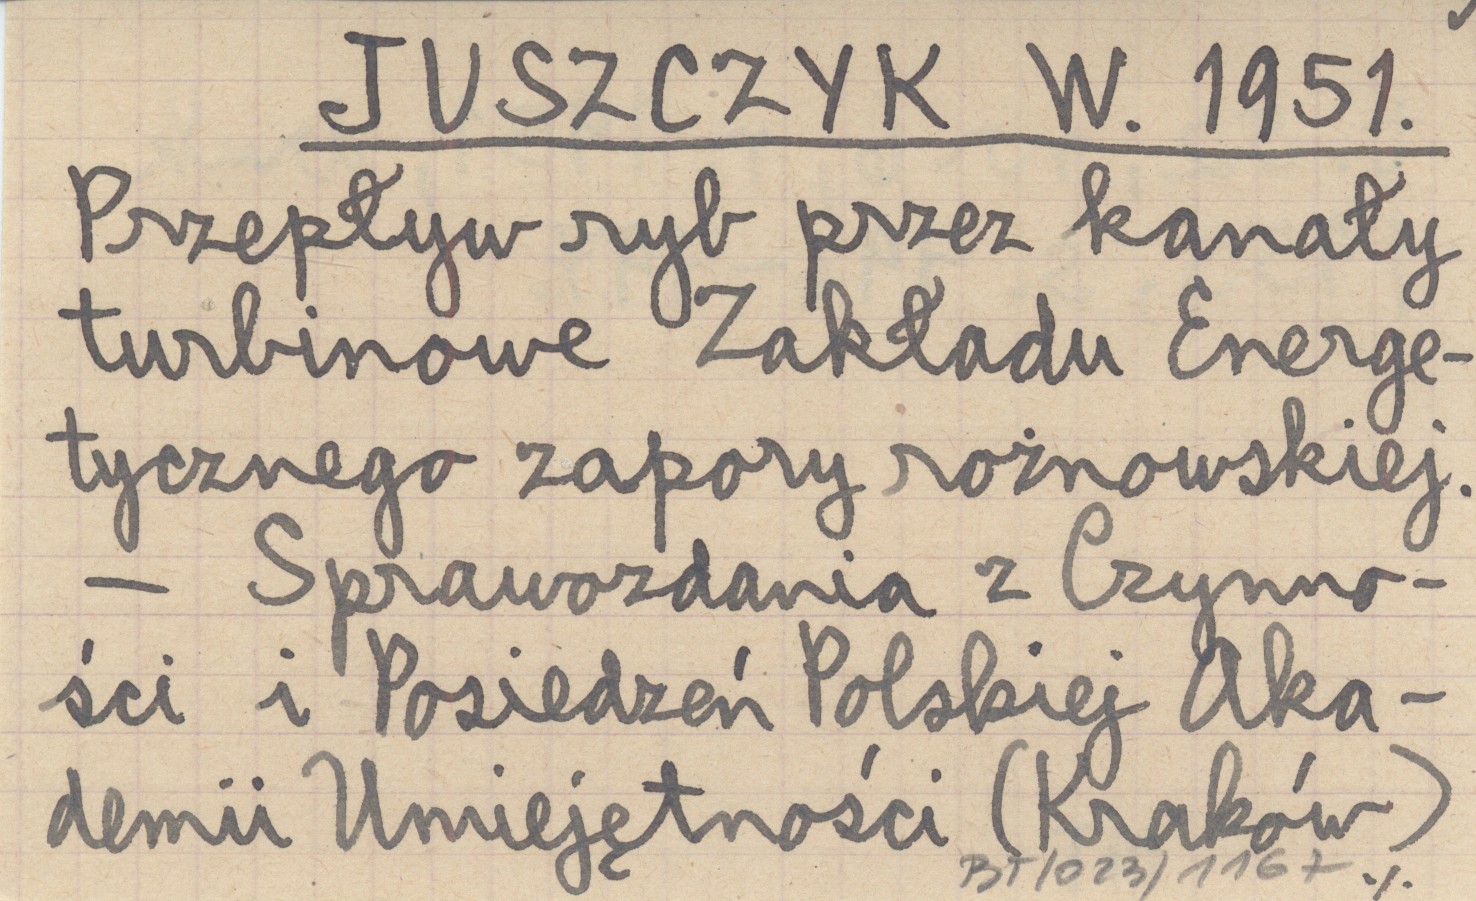 JUSZCZYK W. 1951.
Przepływ ryb przez kanały
turbinowe Zakładu Energe-
tycznego zapory rożnowskiej.
— Sprawozdania z Czynno-
ści i Posiedzeń Polskiej Aka-
demii Umiejętności (Kraków)
BT/023/1167 ./.